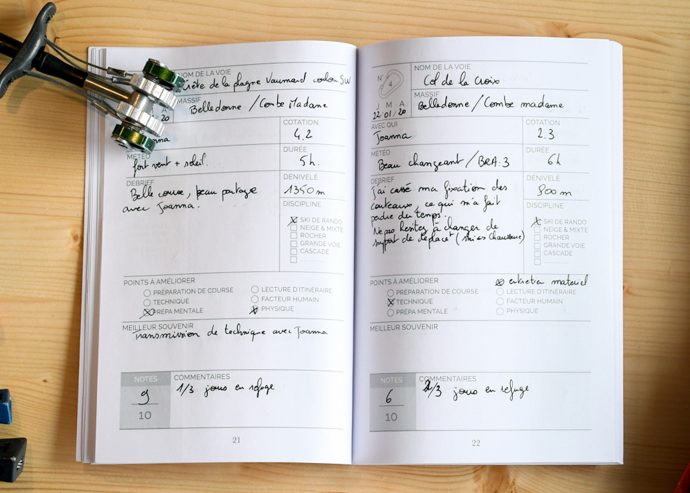 NOM DE LA VOIE
Crête de la plagne Vaumard couloir SW
MASSIF
Belledonne / Combe Madame
20
COTATION
4.2
MÉTÉO
fort vent + soleil.
DURÉE
5h.
DEBRIEF
Belle course, beau partage
avec Joanna.
DÉNIVELÉ
1350m
DISCIPLINE
SKI DE RANDO
NEIGE & MIXTE
ROCHER
GRANDE VOIE
CASCADE
POINTS À AMÉLIORER
PRÉPARATION DE COURSE
LECTURE D'ITINÉRAIRE
TECHNIQUE
FACTEUR HUMAIN
PRÉPA MENTALE
PHYSIQUE
MEILLEUR SOUVENIR
Transmission de technique avec Joanna
NOTES
9
10
COMMENTAIRES
1/3 jours en refuge
21
N°
NOM DE LA VOIE
Col de la Croix
MASSIF
Belledonne / Combe madame
J M A
22 01 20
AVEC QUI
Joanna
COTATION
2.3
MÉTÉO
Beau changeant / BRA: 3
DURÉE
6h
DEBRIEF
J'ai cassé ma fixation des
couteaux, ce qui m'a fait
perdre du temps.
Ne pas hésiter à changer de
support de déplact (skis chaussures)
DÉNIVELÉ
800m
DISCIPLINE
SKI DE RANDO
NEIGE & MIXTE
ROCHER
GRANDE VOIE
CASCADE
POINTS À AMÉLIORER
entretien materiel
PRÉPARATION DE COURSE
LECTURE D'ITINÉRAIRE
TECHNIQUE
FACTEUR HUMAIN
PRÉPA MENTALE
PHYSIQUE
MEILLEUR SOUVENIR
NOTES
6
10
COMMENTAIRES
2/3 jours en refuge
22